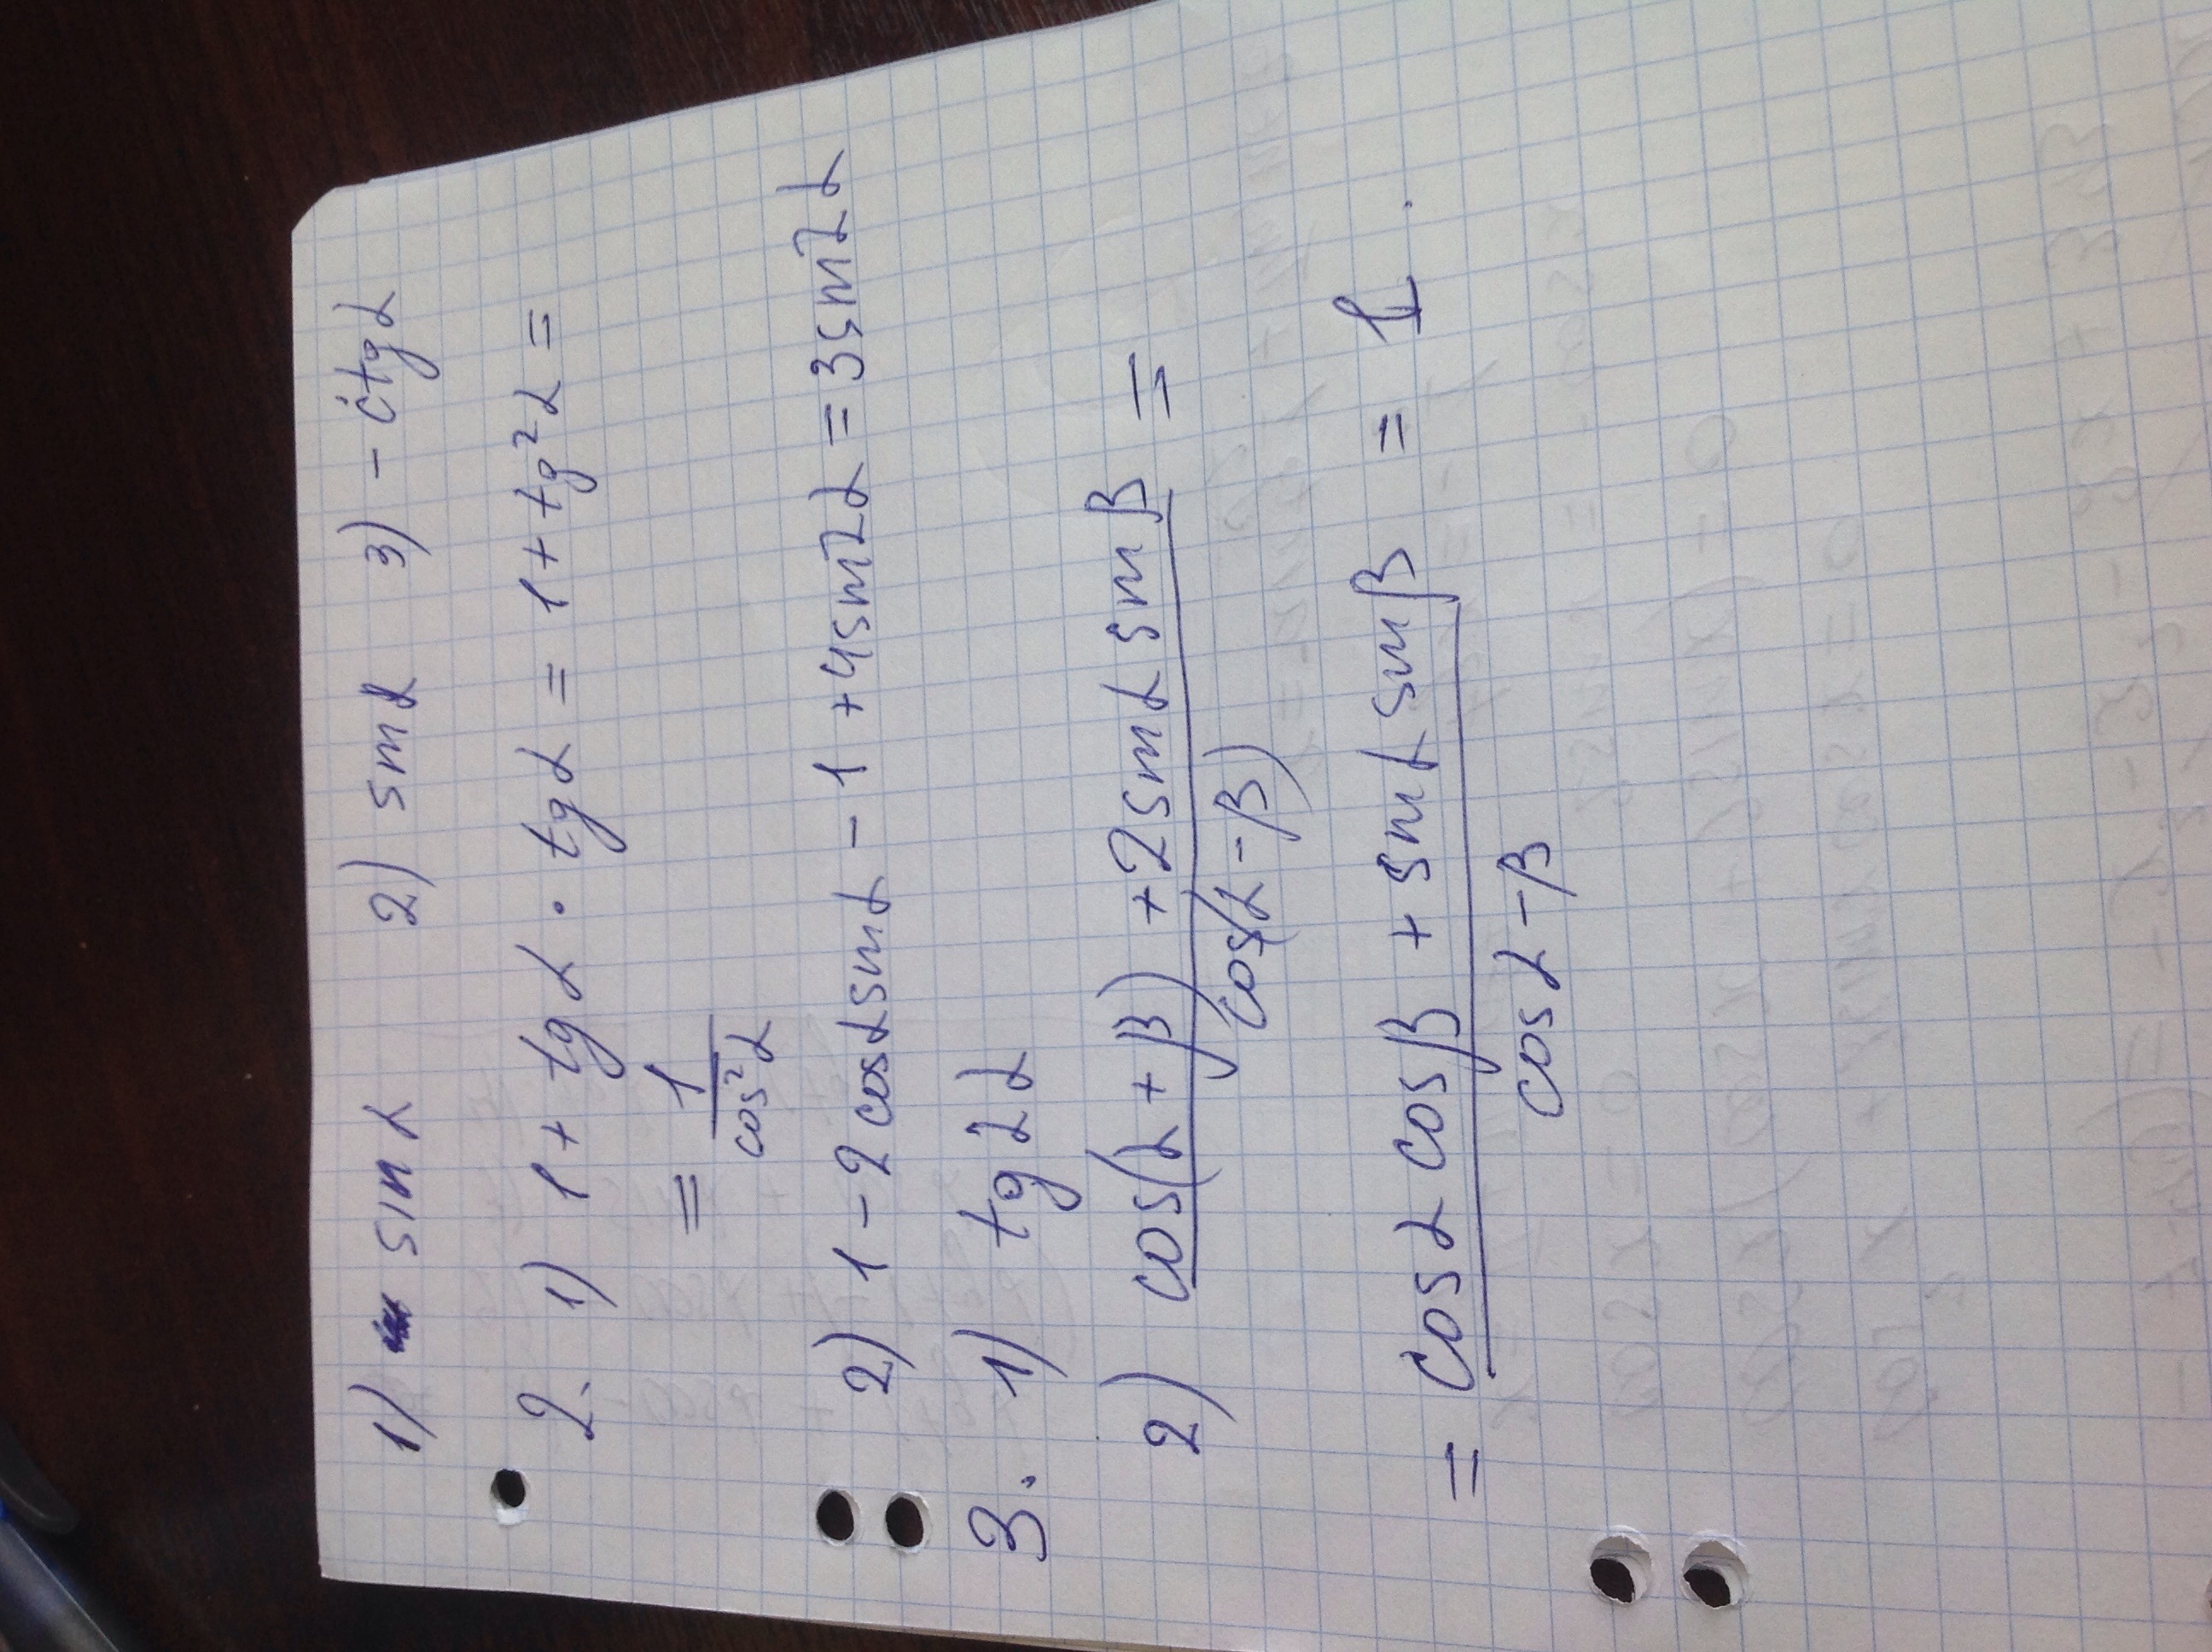 1) sin α 2) sin α 3) - ctg α
2. 1) 1 + tg α · tg α = 1 + tg² α =
= 1/cos² α
2) 1 - 2 cos α sin α - 1 + 4 sin 2α = 3 sin 2α
3. 1) tg 2α
2) cos(α + β) + 2 sin α sin β / cos(α - β) =
= cos α cos β + sin α sin β / cos α - β = 1.